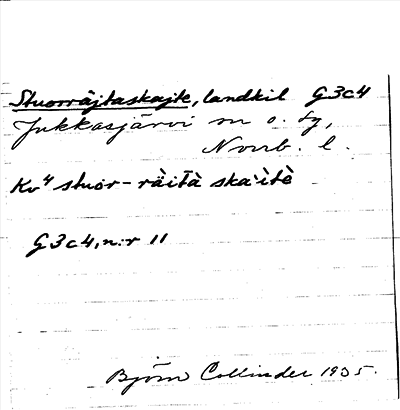 Stuorräjtaskajte, landkil G3c4
Jukkasjärvi sn o. tg,
Norrb. l.
Kv⁴ stuor-räìtà ska'ìtè
G3c4, n:r 11
Björn Collinder 1935.